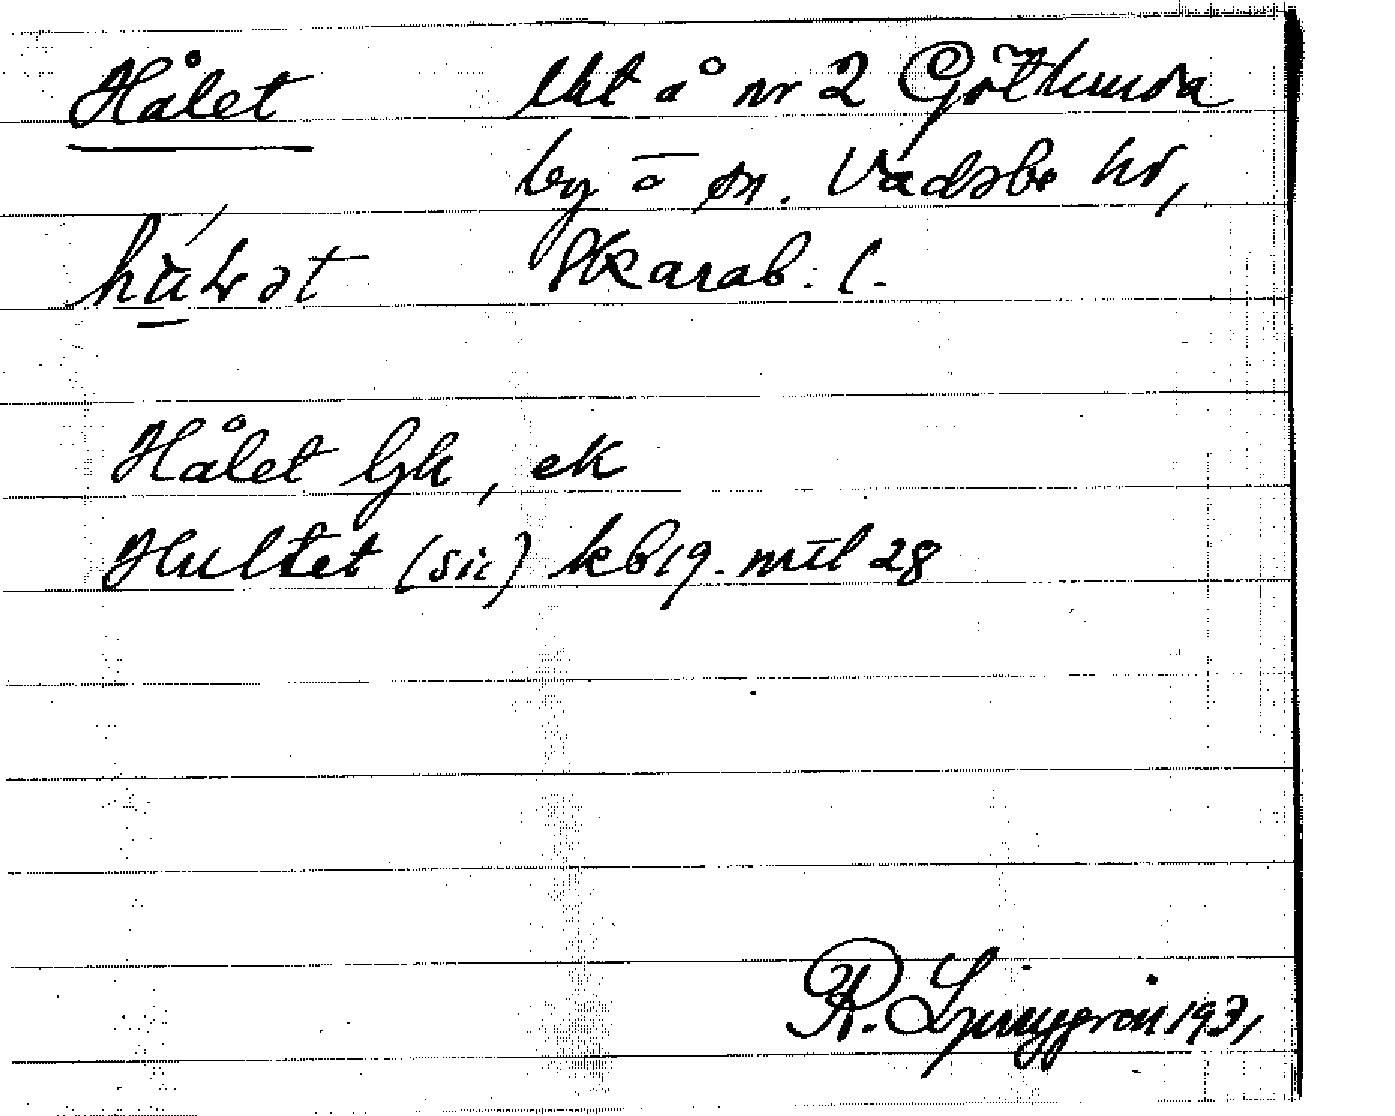 Hålet lht å nr 2 Götlunda
by o sn. Vadsbo hd,
Skarab. l.
Hålet Gk, ek
Hultet (sic) kb19. mtl 28
R. Ljunggren 1931